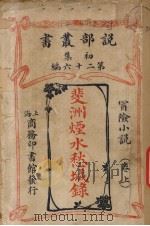 說部叢書
初集
第二十六編
冒險小說（卷上）
斐洲煙水愁城錄
上海商務印書館發行